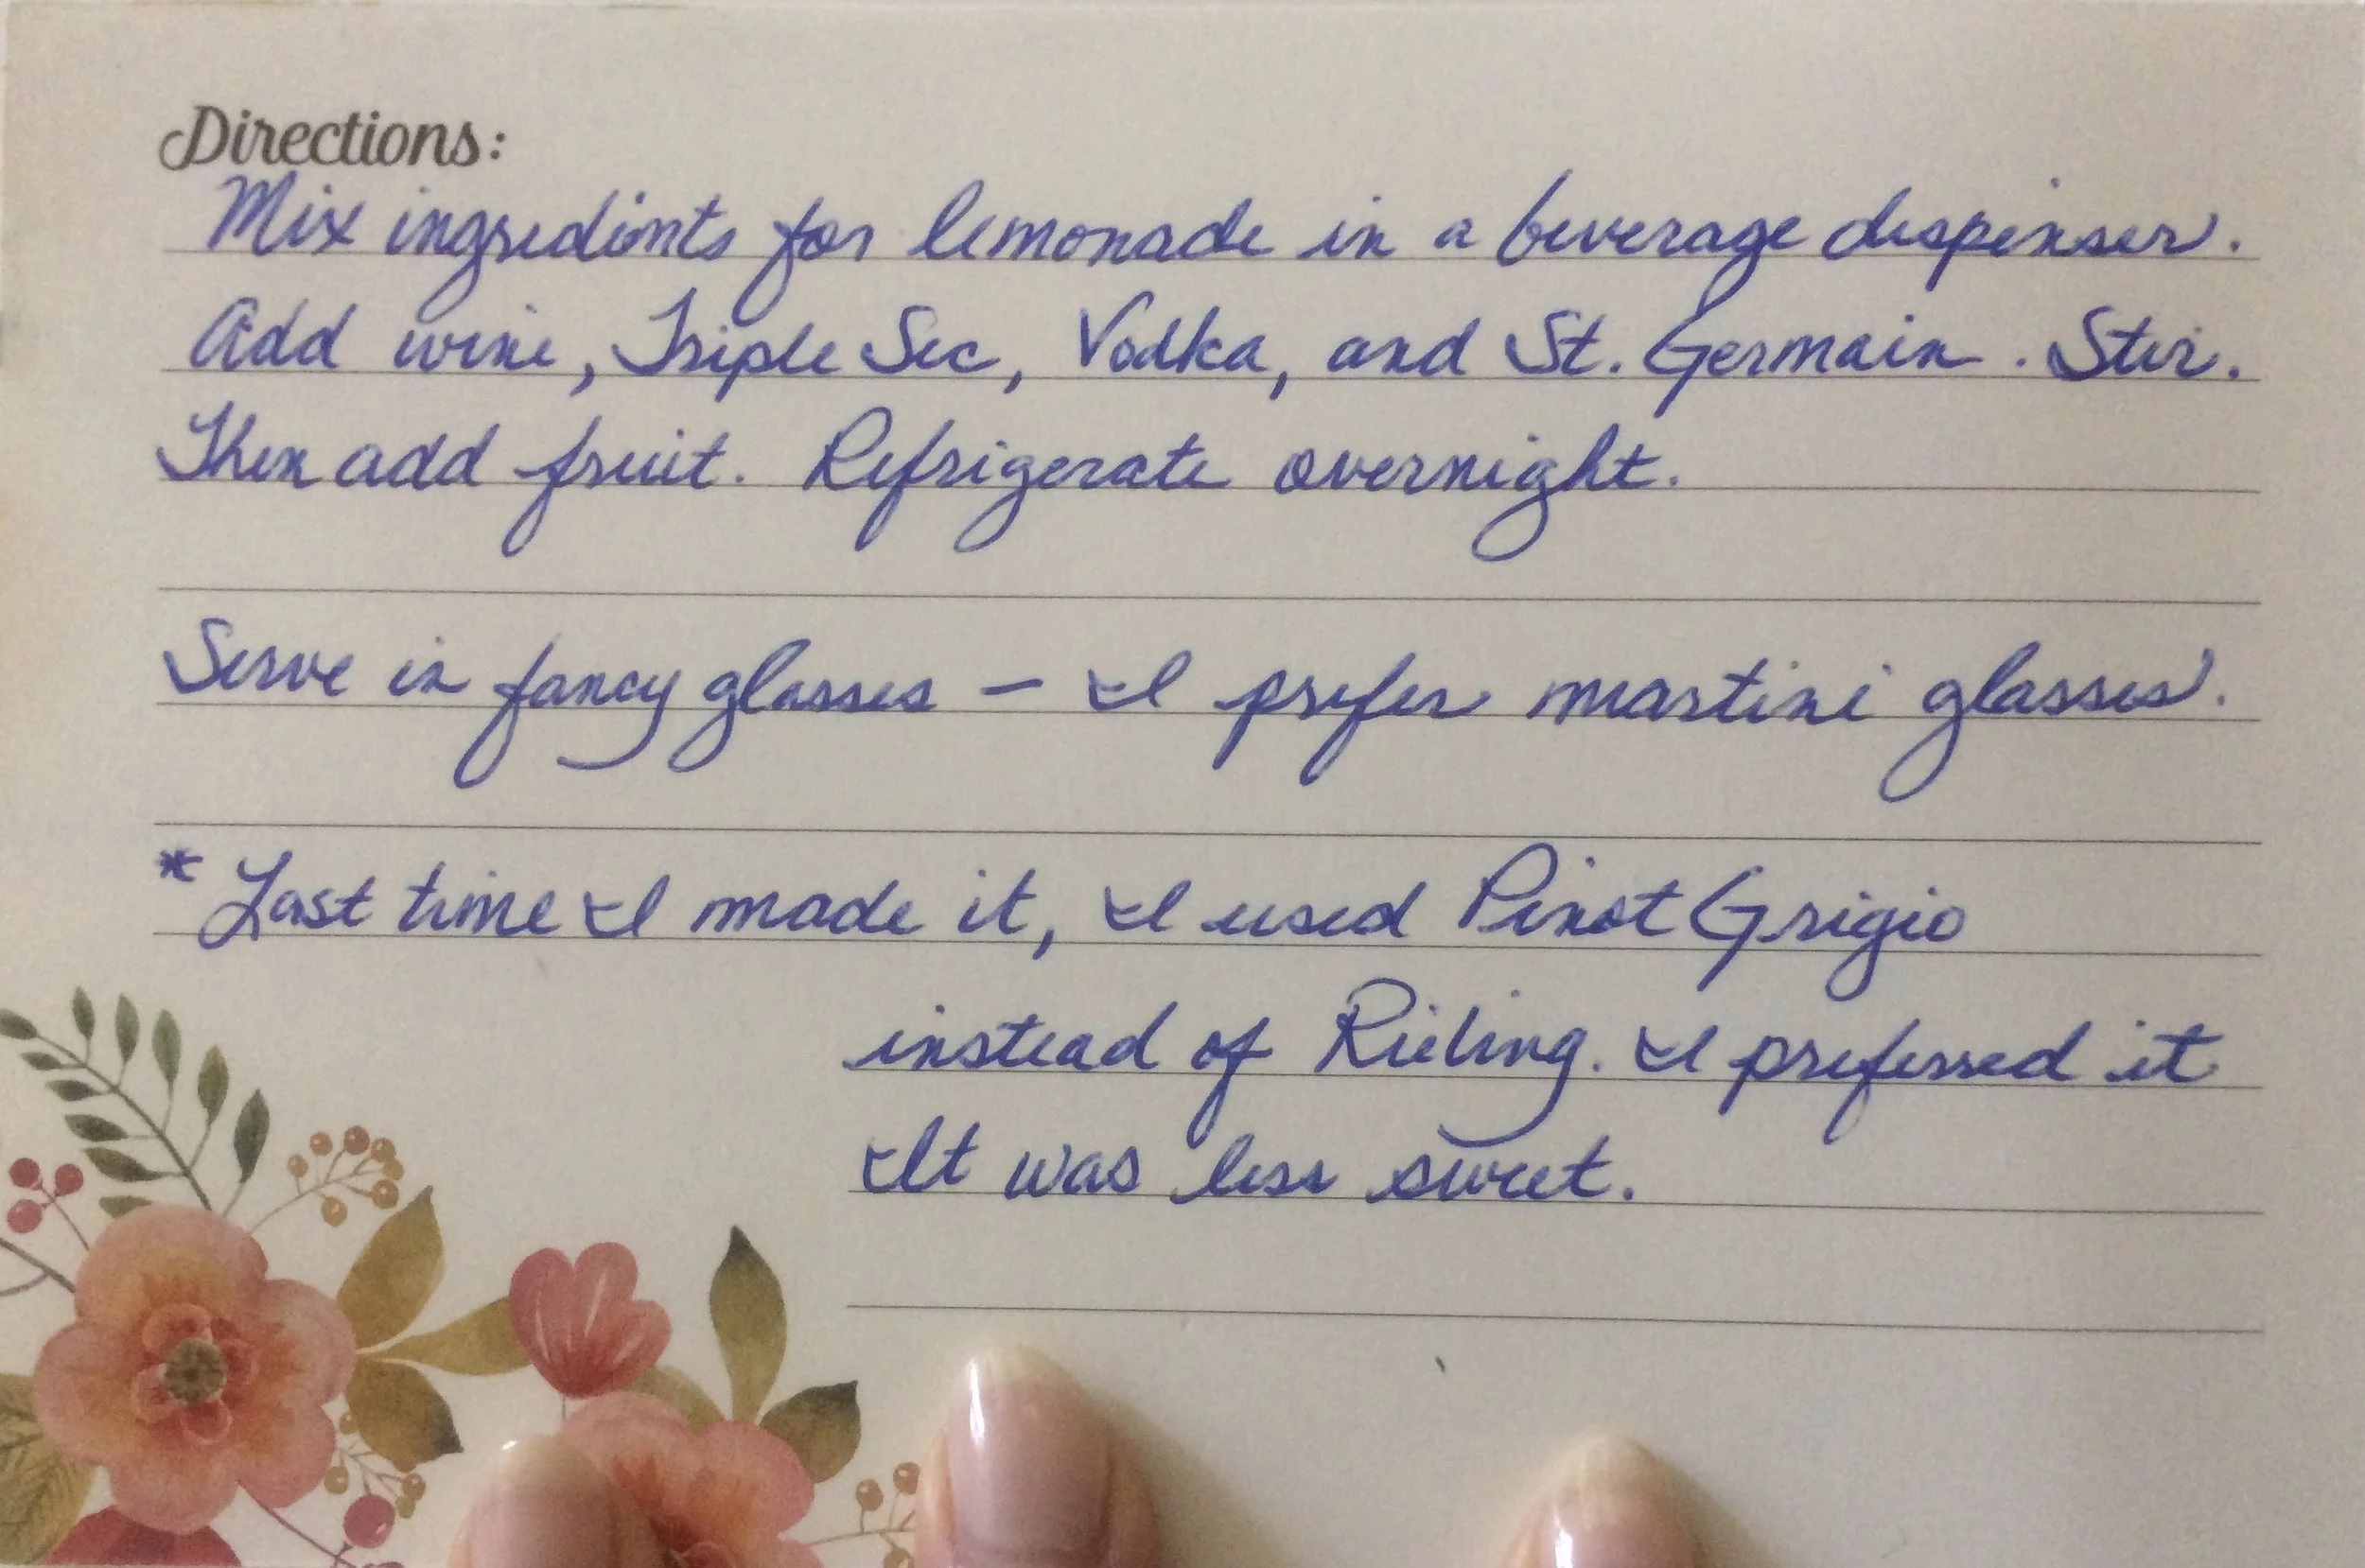 Directions:
Mix ingredients for lemonade in a beverage dispenser.
Add wine, Triple Sec, Vodka, and St. Germain. Stir.
Then add fruit. Refrigerate overnight.
Serve in fancy glasses – I prefer martini glasses.
* Last time I made it, I used Pinot Grigio
instead of Rieling. I preferred it
It was less sweet.